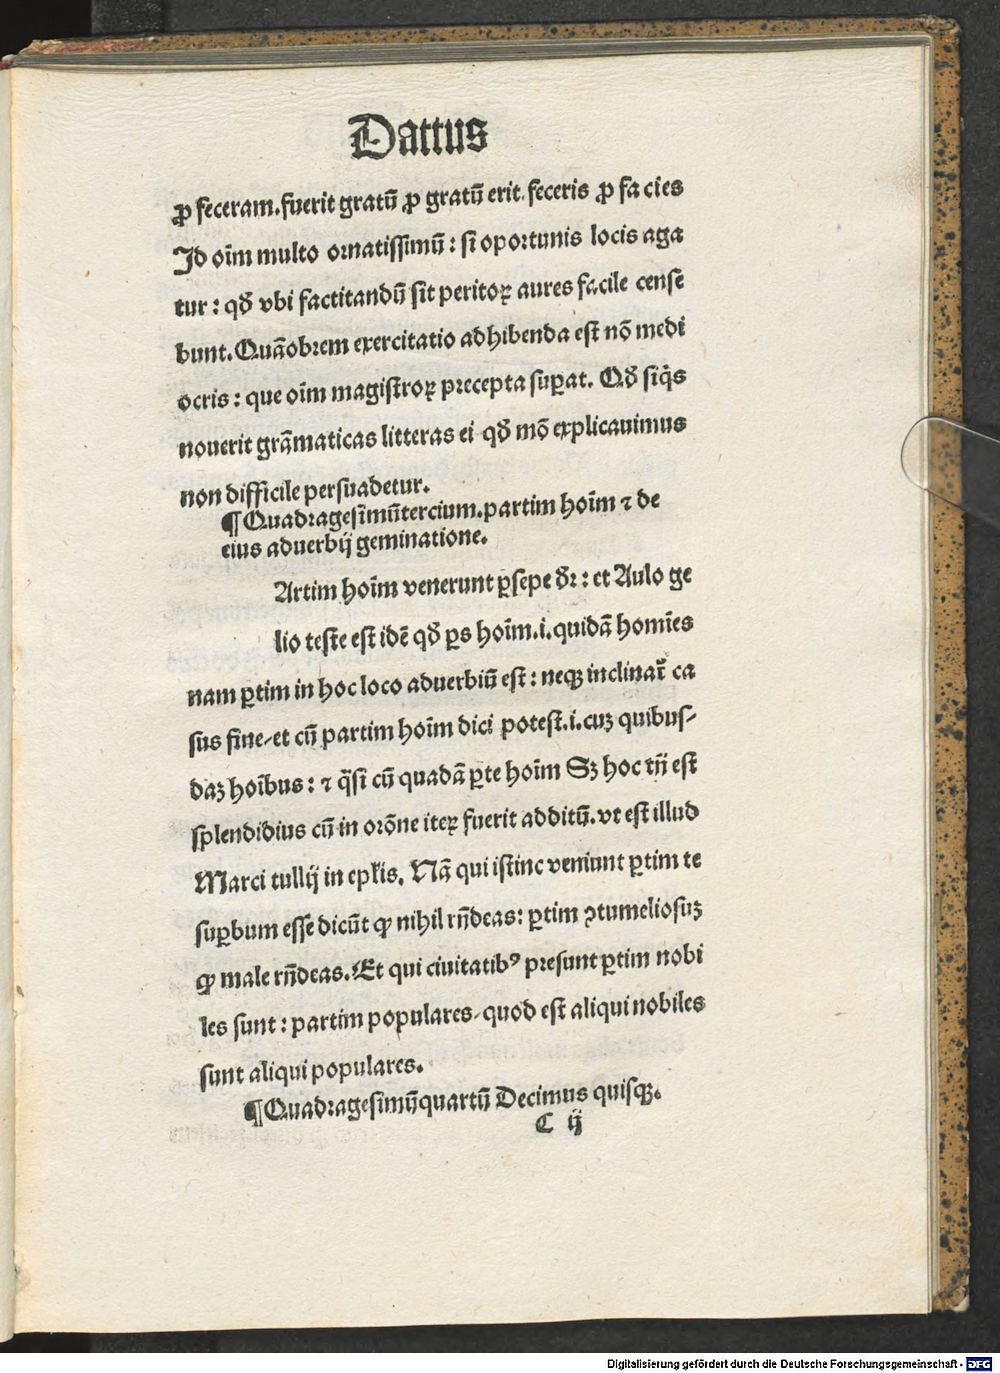 Dattus
ꝓ feceram.fuerit gratū ꝓ gratū erit.feceris ꝓ fa cies
Id oīm multo ornatissimū : si oportunis locis aga
tur : qđ vbi factitandū sit peritoꝝ aures facile cense
bunt.Quāobrem exercitatio adhibenda est nō medi
ocris : que oīm magistroꝝ precepta suꝑat. Qđ siq̄s
nouerit grāmaticas litteras ei qđ mō explicauimus
non difficile persuadetur.
¶Quadragesimūtercium.partim hoīm ⁊ de
eius aduerbij geminatione.
Artim hoīm venerunt ꝑsepe dr̄ : et Aulo ge
lio teste est idē qđ ꝑs hoīm.i.quidā homīes
nam ꝑtim in hoc loco aduerbiū est : neqꝫ inclinat̄ ca
sus fine/et cū partim hoīm dici potest.i.cuꝫ quibus⸗
daꝫ hoībus : ⁊ q̄si cū quadā ꝑte hoīm Sꝫ hoc tn̄ est
splendidius cū in orōne iteꝝ fuerit additū.vt est illud
Marci tullij in epl̄is. Nā qui istinc veniunt ꝑtim te
suꝑbum esse dicūt ꝙ nihil rn̄deas: ꝑtim ꝯtumeliosuꝫ
ꝙ male rn̄deas.Et qui ciuitatibꝰ presunt ꝑtim nobi
les sunt : partim populares/quod est aliqui nobiles
sunt aliqui populares.
¶Quadragesimūquartū Decimus quisqꝫ.
C ij
Digitalisierung gefördert durch die Deutsche Forschungsgemeinschaft - DFG